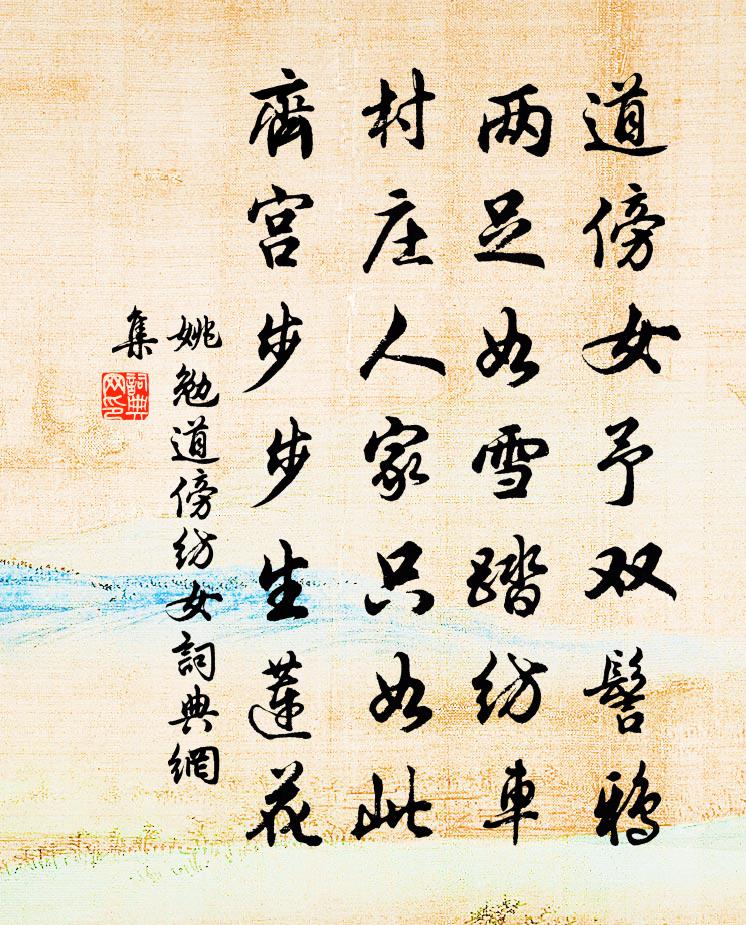 道傍女予双髻鸦
两足如雪踏纺車
村庄人家只如此
齊宫步步生蓮花
姚勉道傍纺女詞典網
集
詞典网印